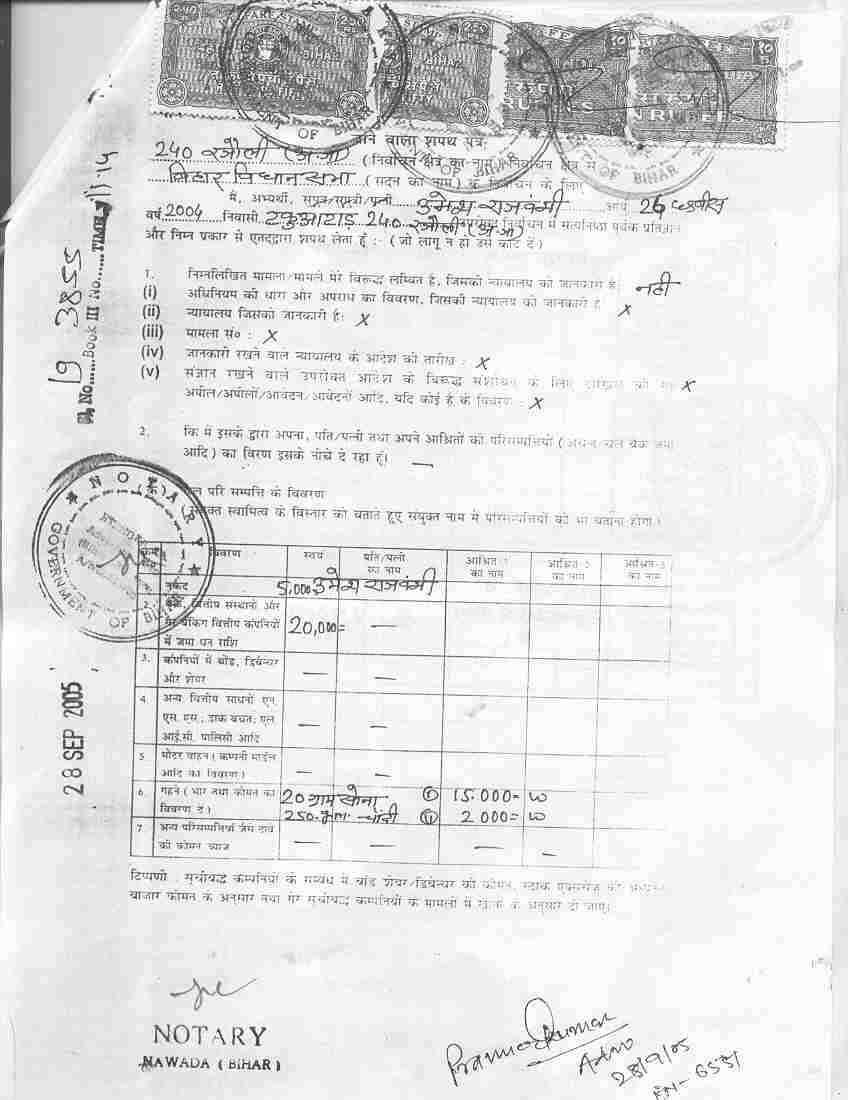 वाले वाला शपथ पत्र:
240 रजौली (अ.जा) (निर्वाचन क्षेत्र का नाम) निर्वाचन क्षेत्र से
बिहार विधान सभा (सदन का नाम) के निर्वाचन के लिए
मैं, अभ्यर्थी, सुपुत्र/सुपुत्री/पत्नी उमेश राजवंशी आयु 26
वर्ष 2004 निवासी टकुआटाड़ 240 रजौली (अ.जा) उपरोक्त निर्वाचन में सत्यनिष्ठा पूर्वक प्रतिज्ञान
और निम्न प्रकार से एतद्द्वारा शपथ लेता हूँ :- ( जो लागू न हो उसे काट दें )
No. 19 3855 Book III No.
1. निम्नलिखित मामला/मामले मेरे विरूद्ध लम्बित है, जिसकी न्यायालय को जानकारी है: नहीं
(i) अधिनियम की धारा और अपराध का विवरण, जिसकी न्यायालय को जानकारी है x
(ii) न्यायालय जिसको जानकारी है: x
(iii) मामला सं० : x
(iv) जानकारी रखने वाले न्यायालय के आदेश की तारीख : x
(v) संज्ञान रखने वाले उपरोक्त आदेश के विरूद्ध संशोधन के लिए दाखिल की गई x
अपील/अपीलों/आवेदन/आवेदनों आदि, यदि कोई है के विवरण : x
2. कि मैं इसके द्वारा अपना, पति/पत्नी तथा अपने आश्रितों की परिसम्पत्तियों ( अचल/चल बैंक जमा
आदि ) का विरण इसके नीचे दे रहा हूँ। —
(क) चल परि सम्पत्ति के विवरण
(संयुक्त स्वामित्व के विस्तार को बताते हुए संयुक्त नाम में परिसम्पत्तियों को भी बताना होगा।)
NOTARY
GOVERNMENT OF BIHAR
विवरण स्वयं पति/पत्नी का नाम आश्रित-1 का नाम आश्रित-2 का नाम आश्रित-3 का नाम
नकद 5,000 उमेश राजवंशी
2. बैंक, वित्तीय संस्थानों और
गैर बैंकिंग वित्तीय कंपनियों 20,000= —
में जमा धन राशि
3. कंपनियों में बोंड, डिबेन्चर
और शेयर — —
4. अन्य वित्तीय साधनों एन.
एस. एस., डाक बचत, एल. — —
आई.सी. पालिसी आदि
5. मोटर वाहन ( कम्पनी मार्डल
आदि का विवरण ) — —
6. गहने ( भार तथा कीमत का 20 ग्राम सोना (i) 15.000=
विवरण दें ) 250 चाँदी (ii) 2000=
7. अन्य परिसम्पत्तियां जैसे दावे
की कीमत ब्याज — — — —
28 SEP 2005
टिप्पणी : सूचीबद्ध कम्पनियों के सम्बंध में बांड शेयर/डिबेन्चर की कीमत, स्टाक एक्सचेंज की
बाजार कीमत के अनुसार तथा गैर सूचीबद्ध कम्पनियों के मामलों में खातों के अनुसार दी जाए।
NOTARY
NAWADA ( BIHAR )
Pramod Kumar
28/9/05